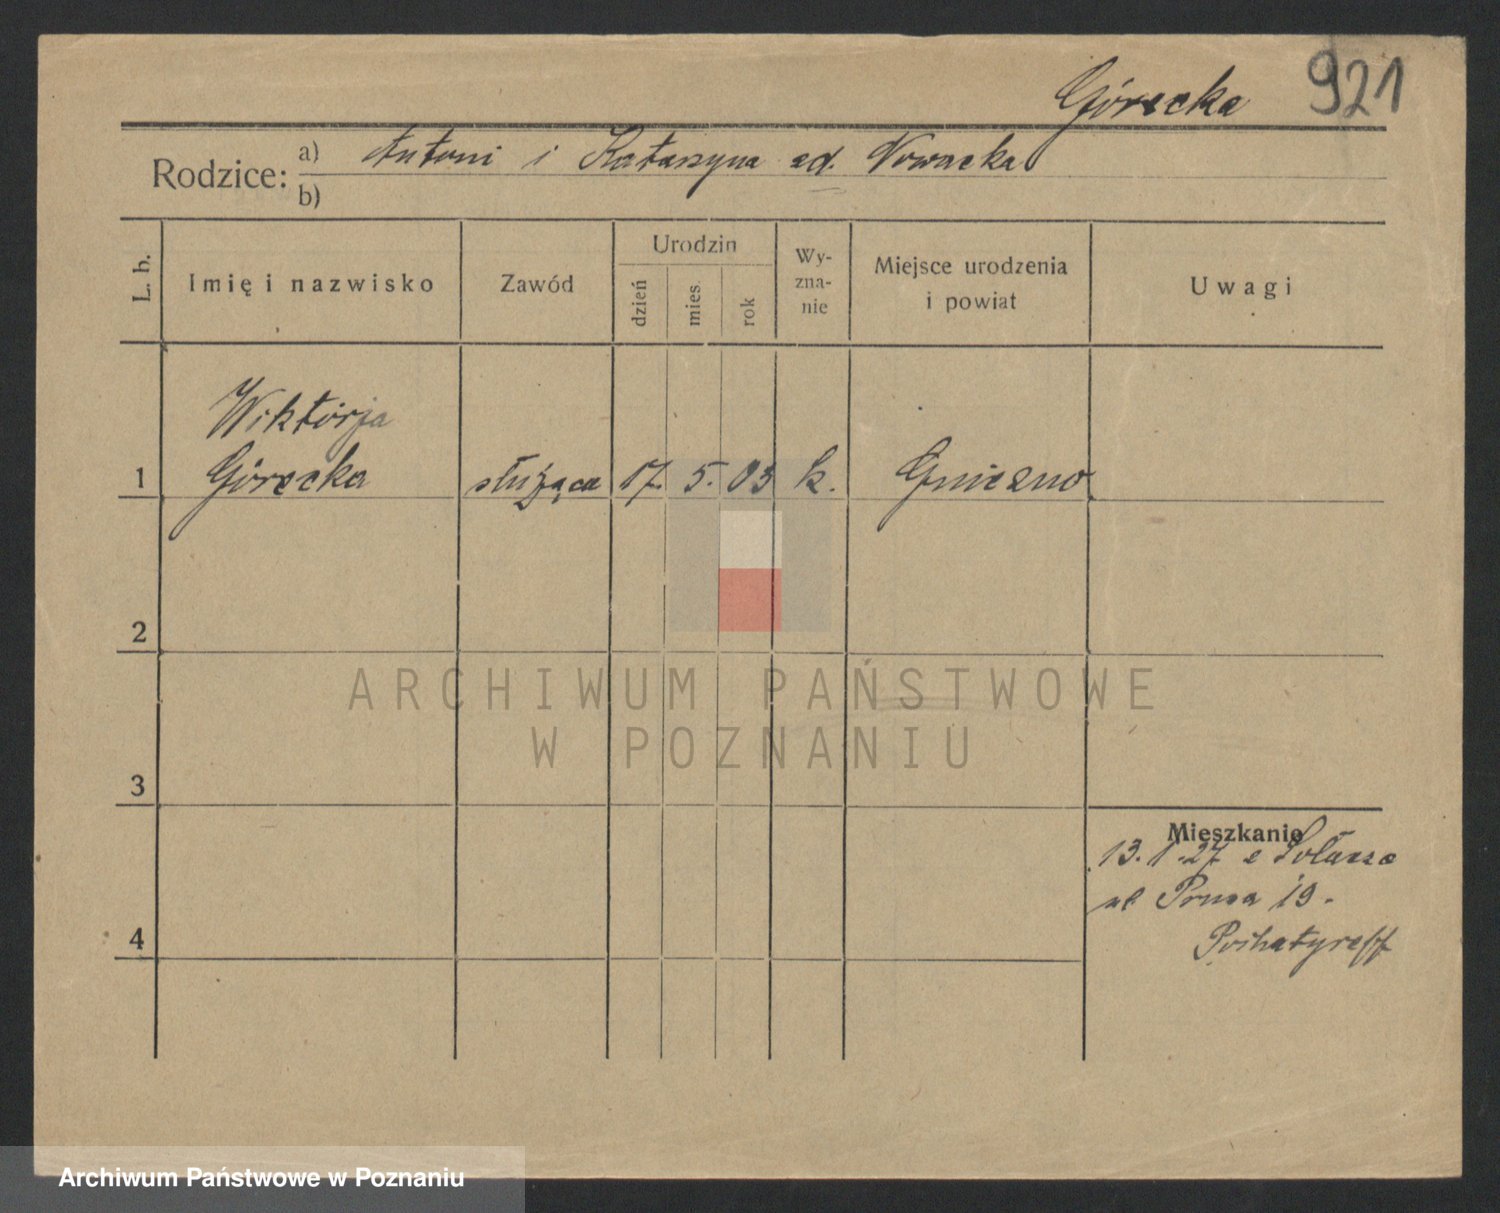 Górecka 921
Rodzice: a) Antoni i Katarzyna zd. Nowacka
b)
L. b.
Imię i nazwisko
Zawód
Urodzin
dzień
mies.
rok
Wy-
zna-
nie
Miejsce urodzenia
i powiat
Uwagi
Wiktorja
1 Górecka służąca 17. 5. 03 k. Gniezno
2
ARCHIWUM PAŃSTWOWE
W POZNANIU
3
Mieszkanie
13. 1. 27 z Sołacza
ul Prusa 19.
4
Archiwum Państwowe w Poznaniu